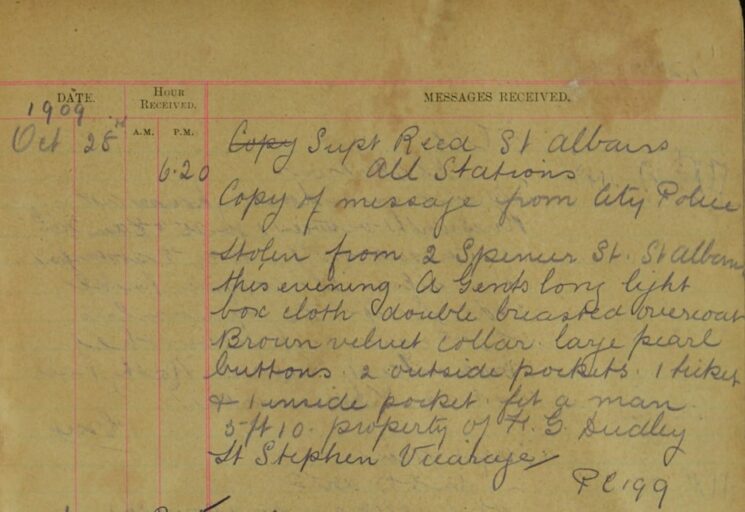 DATE. HOUR RECEIVED. MESSAGES RECEIVED.
A.M. P.M.
1909
Oct 28th
6.20
Copy Supt Reed St Albans
All Stations
Copy of message from City Police
Stolen from 2 Spencer St. St Albans
this evening. A Gents long light
box cloth double breasted overcoat
Brown velvet collar large pearl
buttons. 2 outside pockets. 1 ticket
& 1 inside pocket. fit a man
5 ft 10. property of F. G. Dudley
St Stephen Vicarage
PC 199